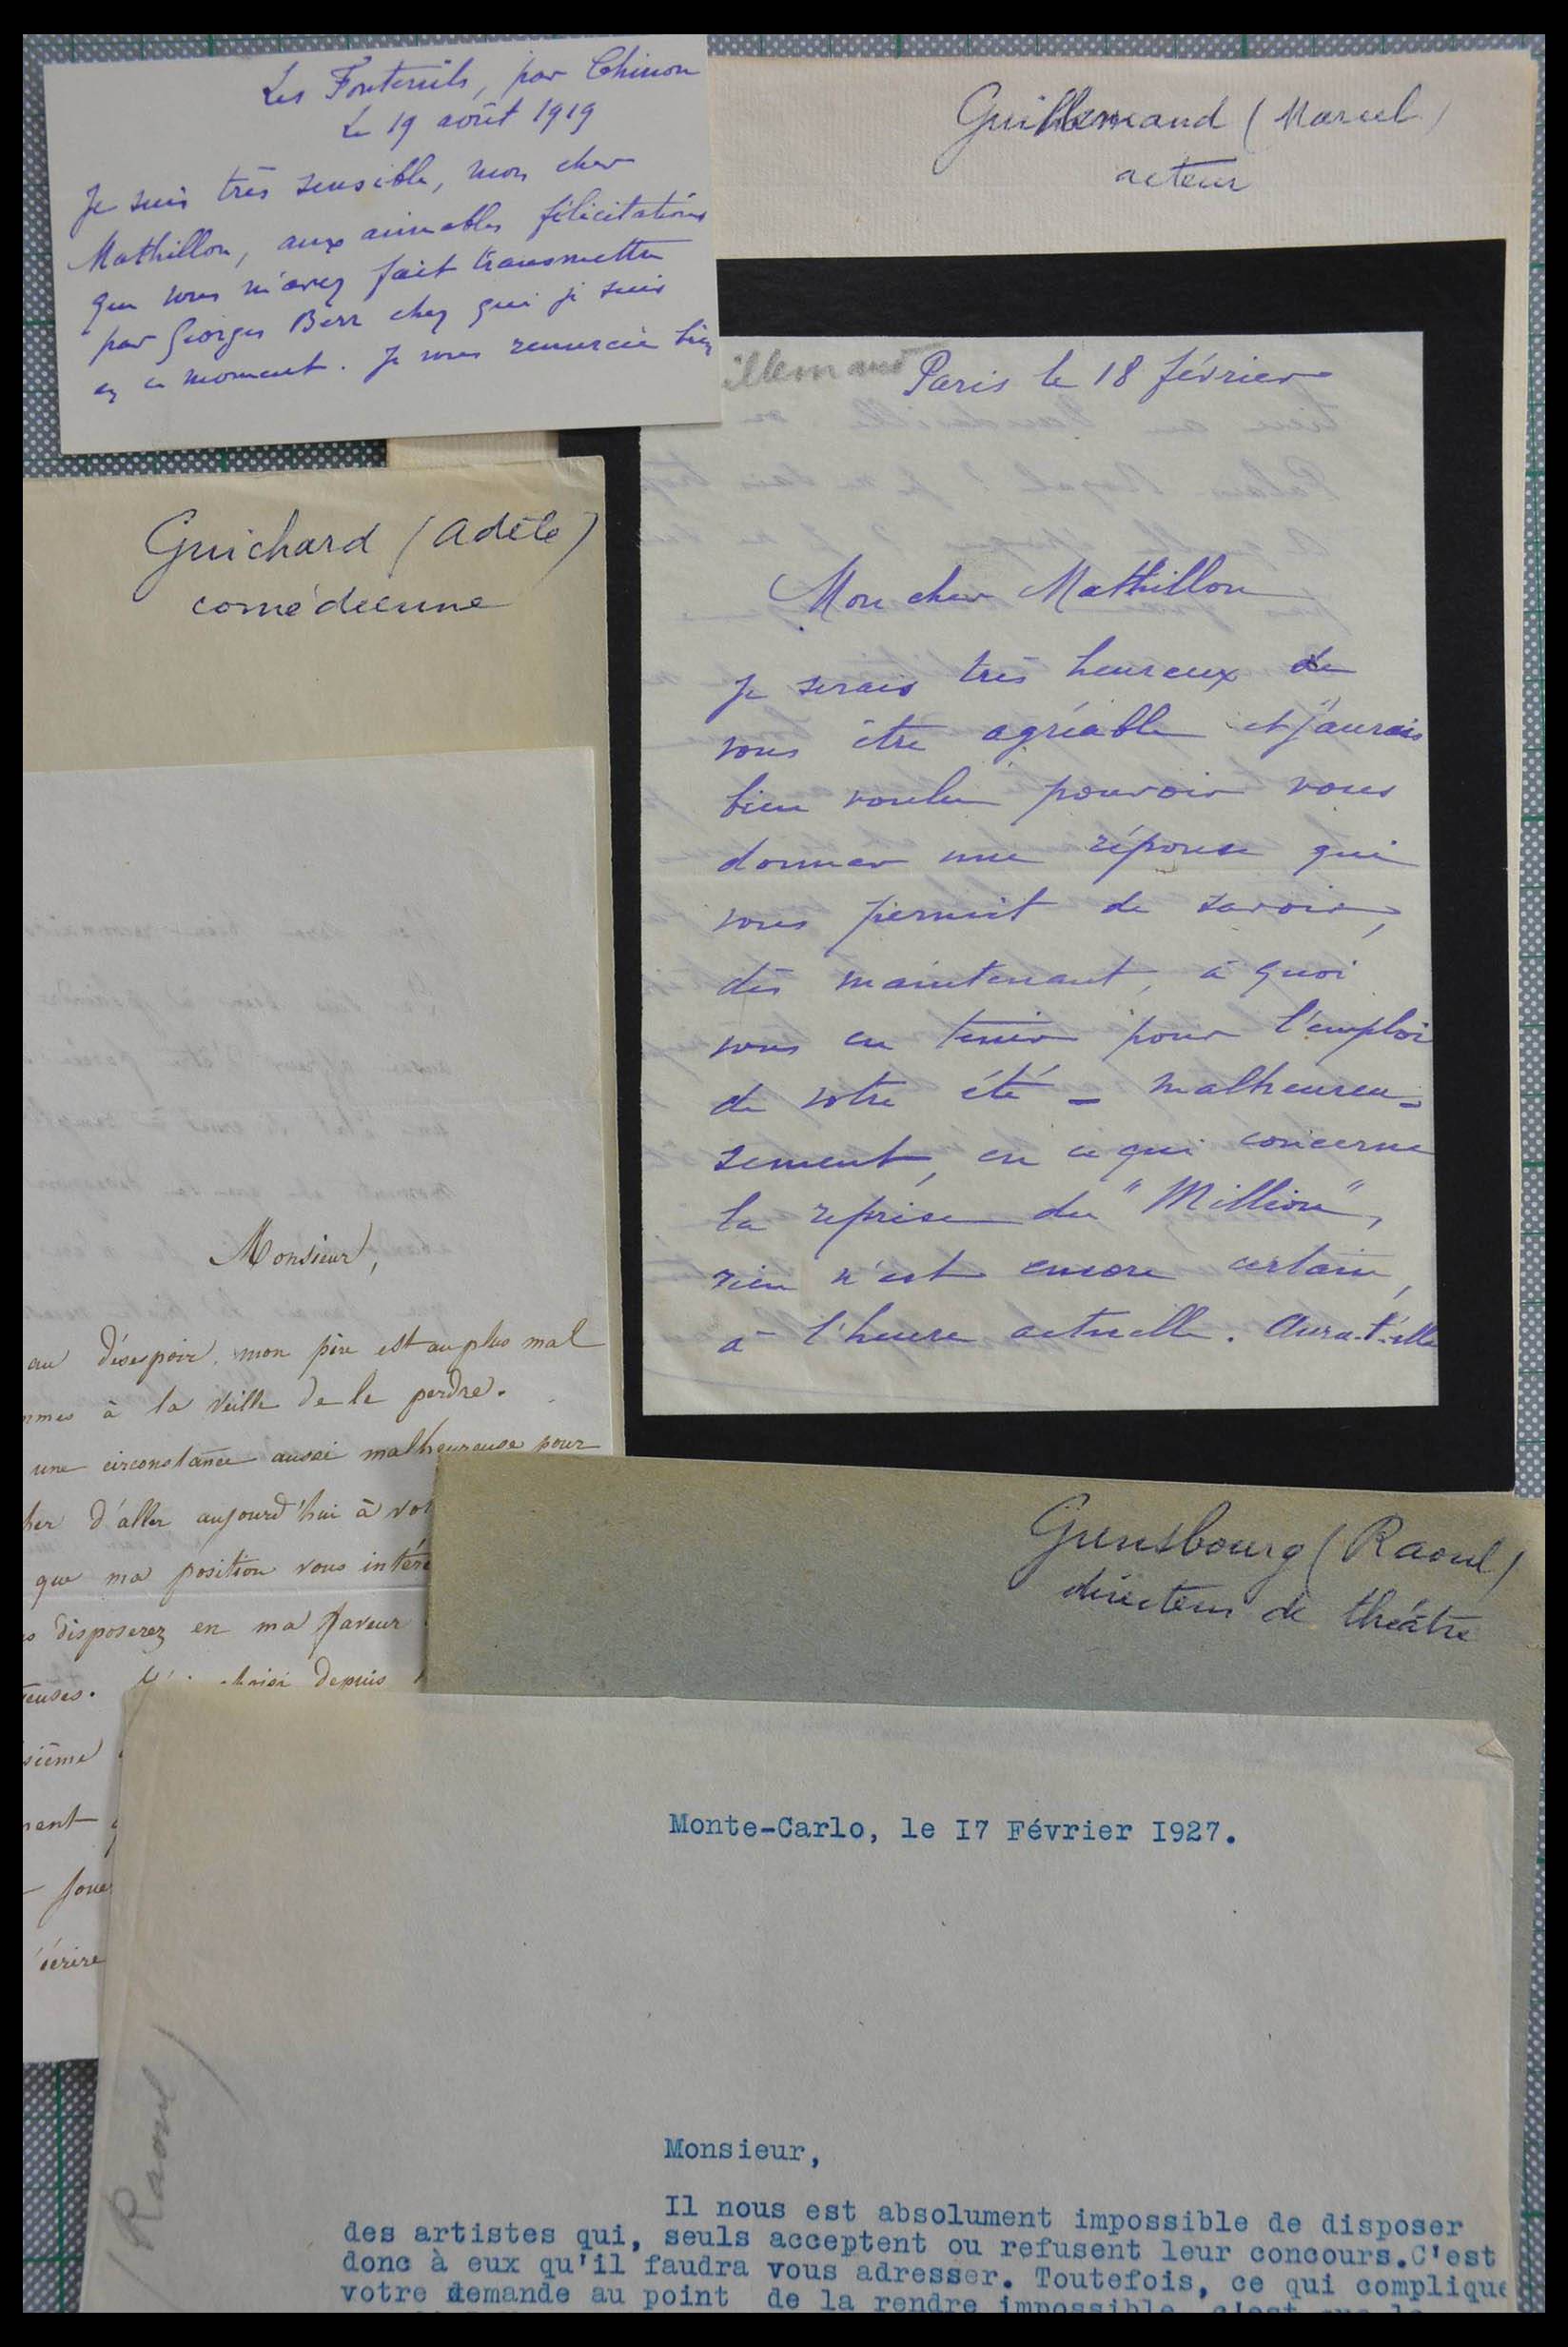 Les Fontenils, par Chinon
Le 19 août 1919
Je suis très sensible, mon cher
Mathillon, aux aimables félicitations
que vous m'avez fait transmettre
par Georges Berr chez qui je suis
en ce moment. Je vous remercie bien
Guillemaud (Marcel)
acteur
illemaud
Paris le 18 février
Mon cher Mathillon
Je serais très heureux de
vous être agréable et j'aurais
bien voulu pouvoir vous
donner une réponse qui
vous permit de savoir,
dès maintenant, à quoi
vous en tenir pour l'emploi
de votre été - malheureu=
sement, en ce qui concerne
la reprise du "Million",
rien n'est encore certain,
à l'heure actuelle. Aura-t-elle
Guichard (Adèle)
comédienne
Monsieur,
au désespoir. mon père est au plus mal
mmes à la veille de le perdre.
une circonstance aussi malheureuse pour
her d'aller aujourd'hui à vot
que ma position vous intére
s disposerez en ma faveur
euses. depuis
sième
ment
joue
écrire
Gunsbourg (Raoul)
directeur de théâtre
(Raoul)
Monte-Carlo, le I7 Février I927.
Monsieur,
Il nous est absolument impossible de disposer
des artistes qui, seuls acceptent ou refusent leur concours.C'est
donc à eux qu'il faudra vous adresser. Toutefois, ce qui complique
votre demande au point de la rendre impossible, c'est que le